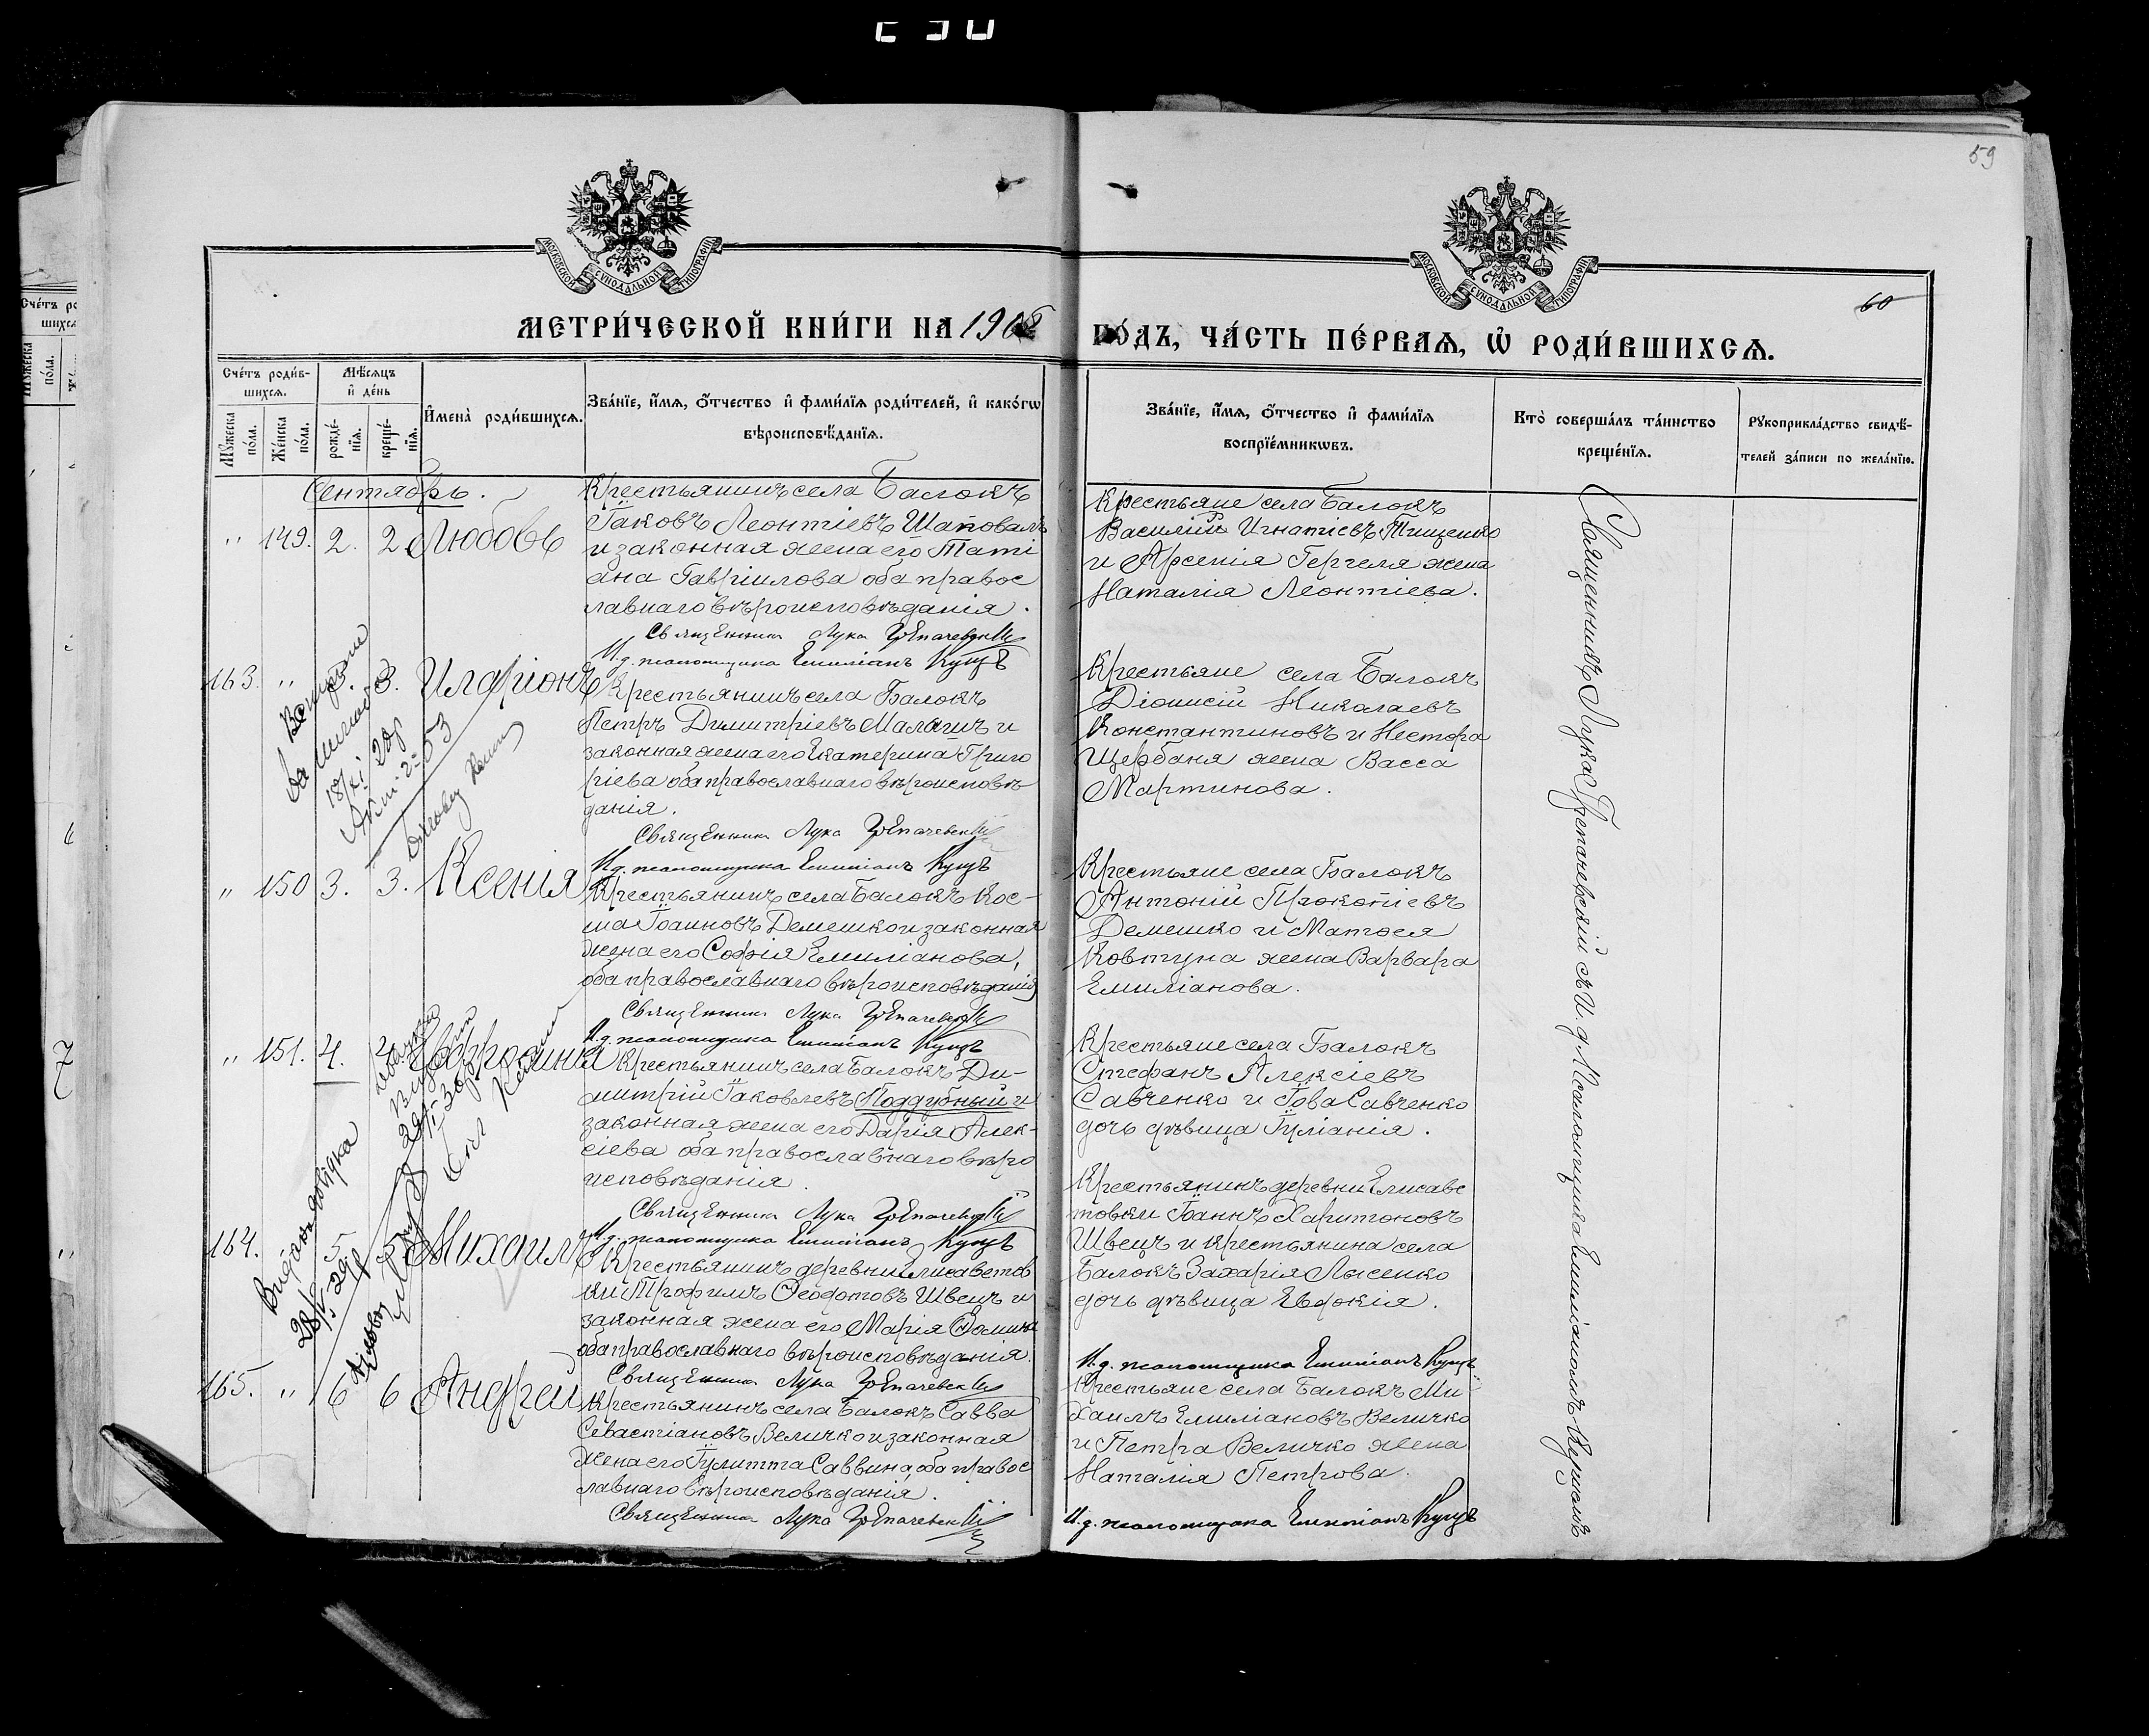 59
МОСКОВСКОЙ СУНОДАЛЬНОЙ ТИПОГРАФІИ
МОСКОВСКОЙ СУНОДАЛЬНОЙ ТИПОГРАФІИ
60
МЕТРИ́ЧЕСКОЙ КНИ́ГИ НА 190
ГО́ДЪ, ЧА́СТЬ ПЕ́РВАѦ, Ѡ҆ РОДИ́ВШИХСѦ.
Сче́тъ роди́в-
шихсѧ.
Мѣ́сѧцъ
и҆ де́нь
Мꙋ́жеска по́ла.
Же́нска по́ла.
рожде́-нїѧ.
креще́-нїѧ.
И҆мена̀ роди́вшихсѧ.
Зва́нїе, и҆́мѧ, ѻ҆́тчество и҆ фами́лїѧ роди́телей, и҆ како́гѡ
вѣроисповѣ́данїѧ.
Зва́нїе, и҆́мѧ, ѻ҆́тчество и҆ фами́лїѧ
воспрїе́мникѡвъ.
Кто̀ соверша́лъ та́инство
креще́нїѧ.
Рꙋкоприкла́дство свидѣ́-
телей за́писи по жела́нїю.
Сентябрь.
" 149. 2. 2 Любовь
Крестьянинъ села Балокъ
Іаковъ Леонтіевъ Шаповалъ
и законная жена его Тати
ана Гавріилова оба правос
лавнаго вѣроисповѣданія.
Священникъ Лука
И.д. псаломщика Емиліанъ Куцъ
Крестьяне села Балокъ
Василій Игнатіевъ Тищенко
и Арсенія Гергеля жена
Наталія Леонтіева.
163. " 3. 3. Иларіонъ
Крестьянинъ села Балокъ
Петръ Димитріевъ Малашъ и
законная жена его Екатерина Григо
ріева оба православнаго вѣроисповѣ
данія.
Священникъ Лука
И.д. псаломщика Емиліанъ Куцъ
Крестьяне села Балокъ
Діонисій Николаевъ
Константиновъ и Нестора
Щербаня жена Васса
Мартинова.
" 150 3. 3. Ксенія
Крестьянинъ села Балокъ Кос-
ма Іоанновъ Демешко и законная
жена его Софія Емиліанова,
оба православнаго вѣроисповѣданія
Священникъ Лука
И.д. псаломщика Емиліанъ Куцъ
Крестьяне села Балокъ
Антоній Прокопіевъ
Демешко и Матѳея
Ковтуна жена Варвара
Емиліанова.
" 151. 4. 4
Крестьянинъ села Балокъ Ди-
митрій Іаковлевъ Поддубный и
законная жена его Дарія Алек-
сіева оба православнаго вѣро
исповѣданія
Священникъ Лука
И.д. псаломщика Емиліанъ Куцъ
Крестьяне села Балокъ
Стефанъ Алексіевъ
Савченко и Іова Савченко
дочь дѣвица Іуліанія.
164. 5 5 Михаилъ
Крестьянинъ деревни Елисаветов
ки Трофимъ Ѳеодотовъ Швецъ и
законная жена его Марія Ѳомина
оба православнаго вѣроисповѣданія.
Священникъ Лука
Крестьянинъ деревни Елисаве
товки Іоаннъ Харитоновъ
Швецъ и крестьянина села
Балокъ Захарія Лысенко
дочь дѣвица Евдокія.
И.д. псаломщика Емиліанъ Куцъ
165. " 6 6 Андрей
Крестьянинъ села Балокъ Савва
Севастіановъ Величко и законная
жена его Іулитта Саввина, оба правос
лавнаго вѣроисповѣданія.
Священникъ Лука
Крестьяне села Балокъ Ми
хаилъ Емиліановъ Величко
и Петра Величко жена
Наталія Петрова.
И.д. псаломщика Емиліанъ Куцъ
Священникъ Лука съ И. д. Псаломщика Емиліаномъ Куцомъ
Видана довідка